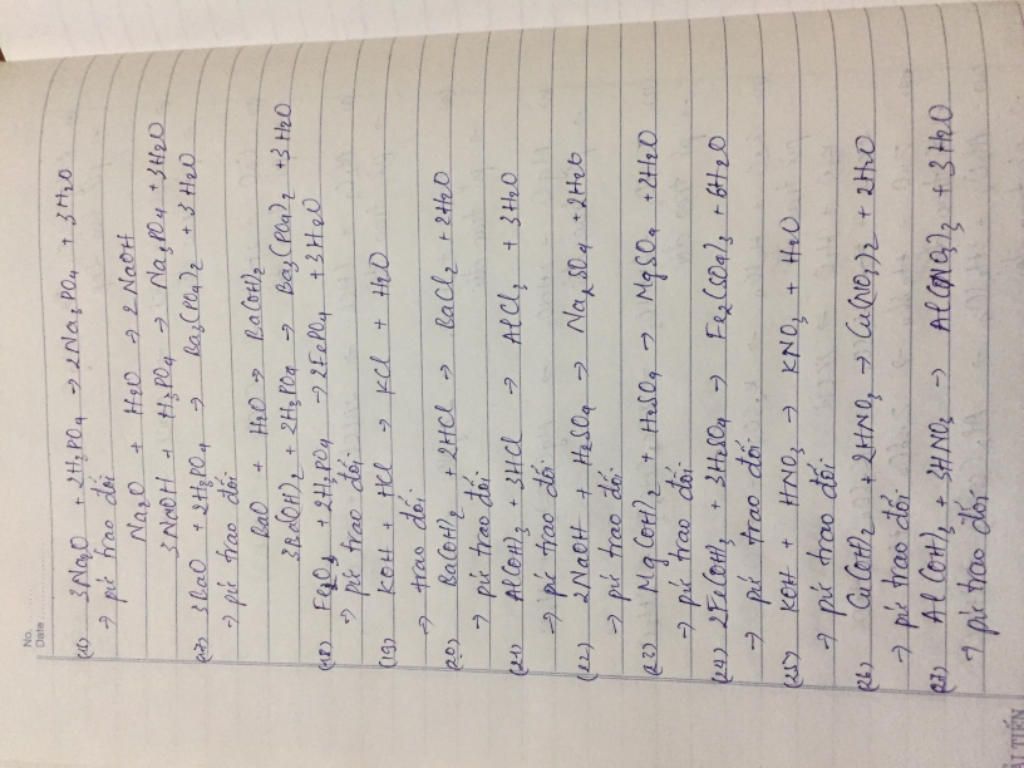 No.
Date
(16) 3Na2O + 2H3PO4 → 2Na3PO4 + 3H2O
→ pứ trao đổi
Na2O + H2O → 2NaOH
3NaOH + H3PO4 → Na3PO4 + 3H2O
(17) 3BaO + 2H3PO4 → Ba3(PO4)2 + 3H2O
→ pứ trao đổi
BaO + H2O → Ba(OH)2
3Ba(OH)2 + 2H3PO4 → Ba3(PO4)2 + 3H2O
(18) Fe2O3 + 2H3PO4 → 2FePO4 + 3H2O
→ pứ trao đổi
(19) KOH + HCl → KCl + H2O
→ trao đổi
(20) Ba(OH)2 + 2HCl → BaCl2 + 2H2O
→ pứ trao đổi
(21) Al(OH)3 + 3HCl → AlCl3 + 3H2O
→ pứ trao đổi
(22) 2NaOH + H2SO4 → Na2SO4 + 2H2O
→ pứ trao đổi
(23) Mg(OH)2 + H2SO4 → MgSO4 + 2H2O
→ pứ trao đổi
(24) 2Fe(OH)3 + 3H2SO4 → Fe2(SO4)3 + 6H2O
→ pứ trao đổi
(25) KOH + HNO3 → KNO3 + H2O
→ pứ trao đổi
(26) Cu(OH)2 + 2HNO3 → Cu(NO3)2 + 2H2O
→ pứ trao đổi
(27) Al(OH)3 + 3HNO3 → Al(NO3)3 + 3H2O
→ pứ trao đổi
ẢI TIẾN